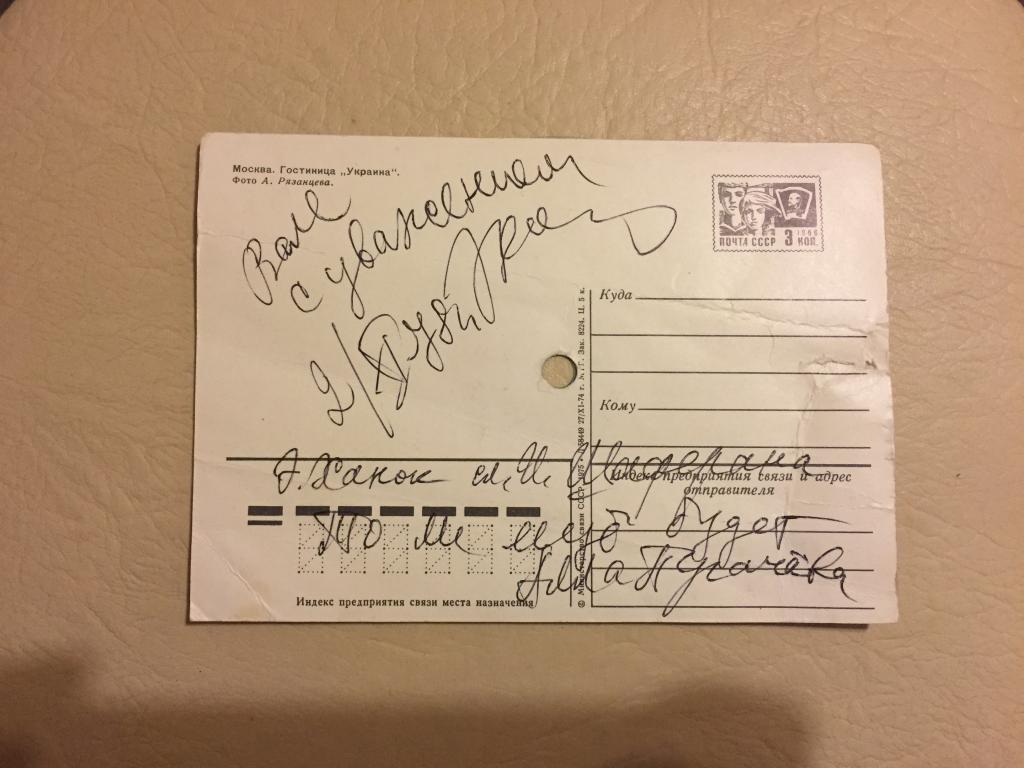 Москва. Гостиница „Украина“.
Фото А. Рязанцева.
Вале
с уважением
ПОЧТА СССР 3 КОП.
1966
Куда
Кому
Э. Ханок сл. И. Шаферана
Индекс предприятия связи и адрес
отправителя
То ли ещё будет
Алла Пугачёва
Индекс предприятия связи места назначения
© Министерство связи СССР 1975 27/XI-74 г. Зак. 8224. Ц. 5 к.